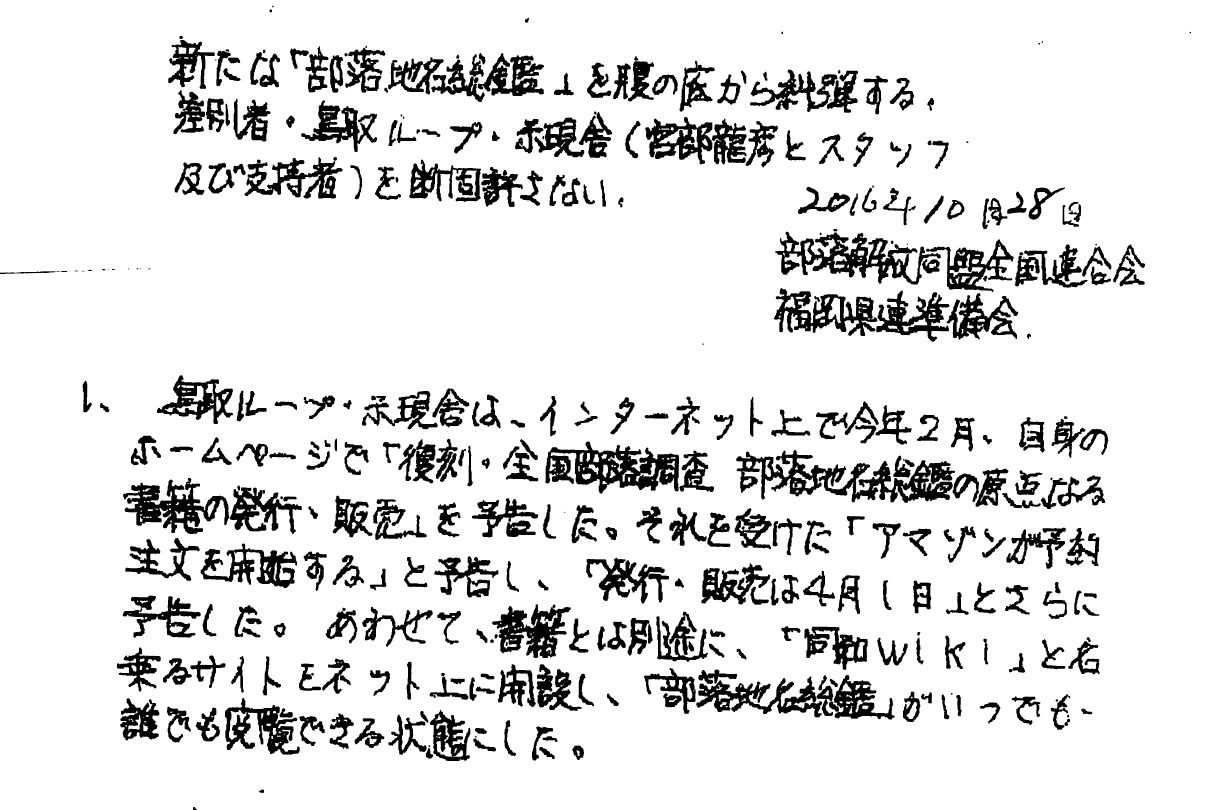 新たな「部落地名総鑑」を腹の底から糾弾する.
差別者・鳥取ループ・示現舎(宮部龍彦とスタッフ
及び支持者)を断固許さない.
2016年10月28日
部落解放同盟全国連合会
福岡県連準備会.
1、 鳥取ループ・示現舎は、インターネット上で今年2月、自身の
ホームページで「復刻・全国部落調査 部落地名総鑑の原点なる
書籍の発行・販売」を予告した。それを受けた「アマゾンが予約
注文を開始する」と予告し、「発行・販売は4月1日」とさらに
予告した。あわせて、書籍とは別途に、「同和wiki」と名
乗るサイトをネット上に開設し、「部落地名総鑑」がいつでも・
誰でも閲覧できる状態にした。